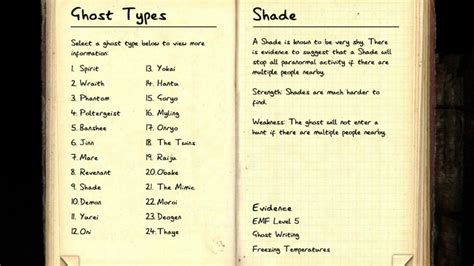 Ghost Types
Select a ghost type below to view more
information:
1. Spirit
2. Wraith
3. Phantom
4. Poltergeist
5. Banshee
6. Jinn
7. Mare
8. Revenant
9. Shade
10. Demon
11. Yurei
12. Oni
13. Yokai
14. Hantu
15. Goryo
16. Myling
17. Onryo
18. The Twins
19. Raiju
20. Obake
21. The Mimic
22. Moroi
23. Deogen
24. Thaye
Shade
A Shade is known to be very shy. There
is evidence to suggest that a Shade will
stop all paranormal activity if there are
multiple people nearby.
Strength: Shades are much harder to
find.
Weakness: The ghost will not enter a
hunt if there are multiple people nearby.
Evidence
EMF Level 5
Ghost Writing
Freezing Temperatures